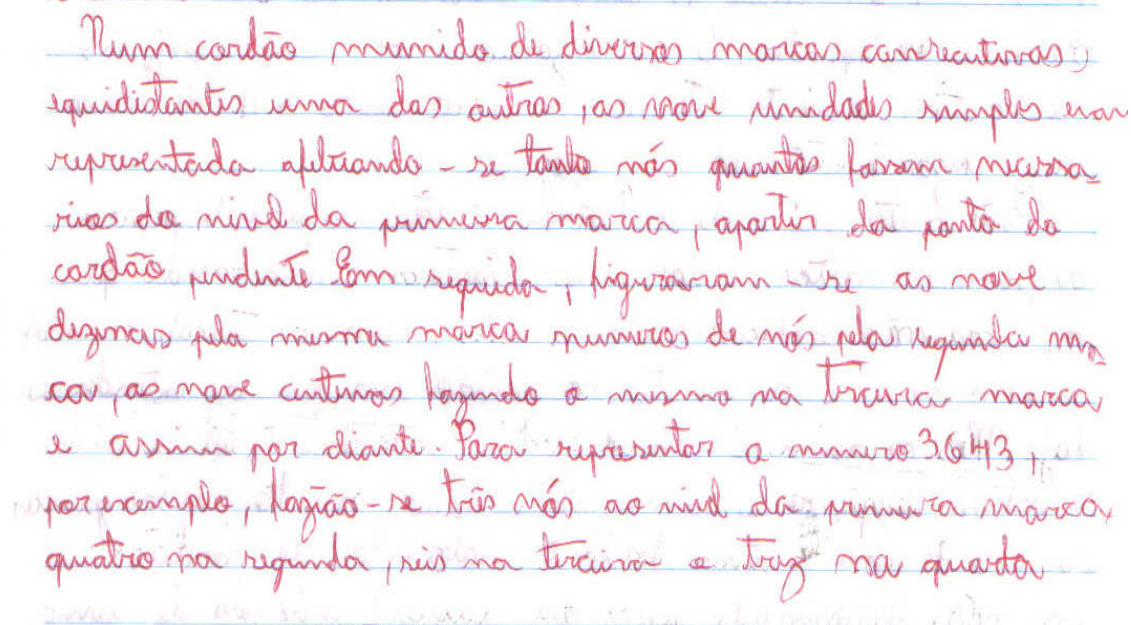 Num cordão munido de diversos marcas consecutivas,
equidistantes uma das outras, as nove unidades simples eram
representada afeltiando-se tanto nós quantos fossem necessa-
rios do nivel da primeira marca, apartir da ponta do
cordão pendente Em seguida, figuravam-se as nove
dezenas pela mesma marca numeros de nós pela segunda mar
ca, as nove centenas fazendo o mesmo na terceira marca
e assim por diante. Para representar o numero 3.643,
por exemplo, fazião-se três nós ao nivel da primeira marca,
quatro na segunda, seis na terceira e traz na quarta